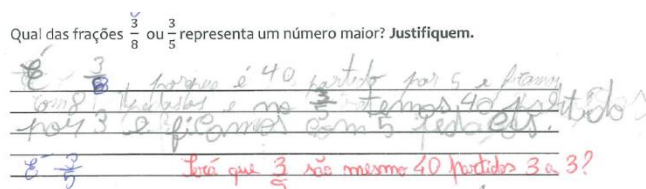 Qual das frações 3/8 ou 3/5 representa um número maior? Justifiquem.
É 3/8 porque é 40 partido por 5 e ficamos
com 8 pedaços e no 3/5 temos 40 partido
por 3 e ficamos com 5 pedaços.
É 3/5 Será que 3/5 são mesmo 40 partidos 3 a 3?